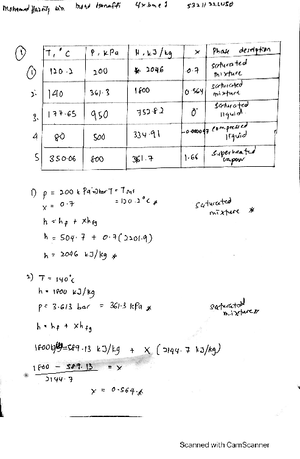 T, °C P, kPa H, kJ/kg x Phase description
① 120.2 200 2046 0.7 saturated mixture
2. 140 361.3 1800 0.564 saturated mixture
3. 177.65 950 752.82 0 saturated liquid
4 80 500 334.91 compressed liquid
5 350.06 800 1.66 superheated vapour
1) P = 200 kPa T = Tsat
x = 0.7 = 120.2°C
saturated mixture
h = hf + xhfg
h = 504.7 + 0.7 (2201.9)
h = 2046 kJ/kg
2) T = 140°C
h = 1800 kJ/kg
P = 3.613 bar = 361.3 kPa
saturated mixture
h = hf + xhfg
1800 = 589.13 kJ/kg + x (2144.7 kJ/kg)
1800 - 589.13 = x
2144.7
x = 0.564
Scanned with CamScanner